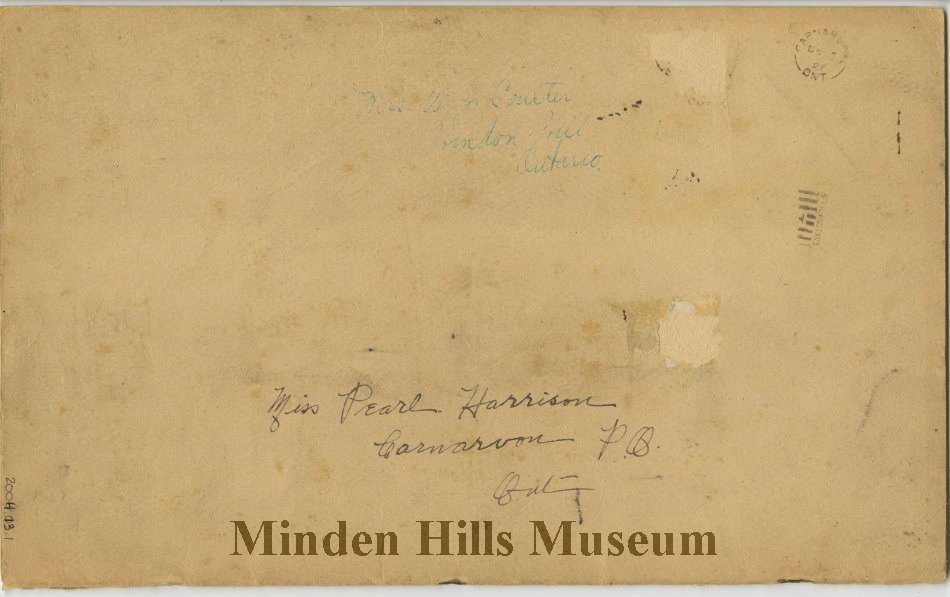 CARNARVON
DE
21
ONT
Mrs. W J Coulter
Ontario
Miss Pearl Harrison
Carnarvon P.O.
Ont
2004.13.1
Minden Hills Museum